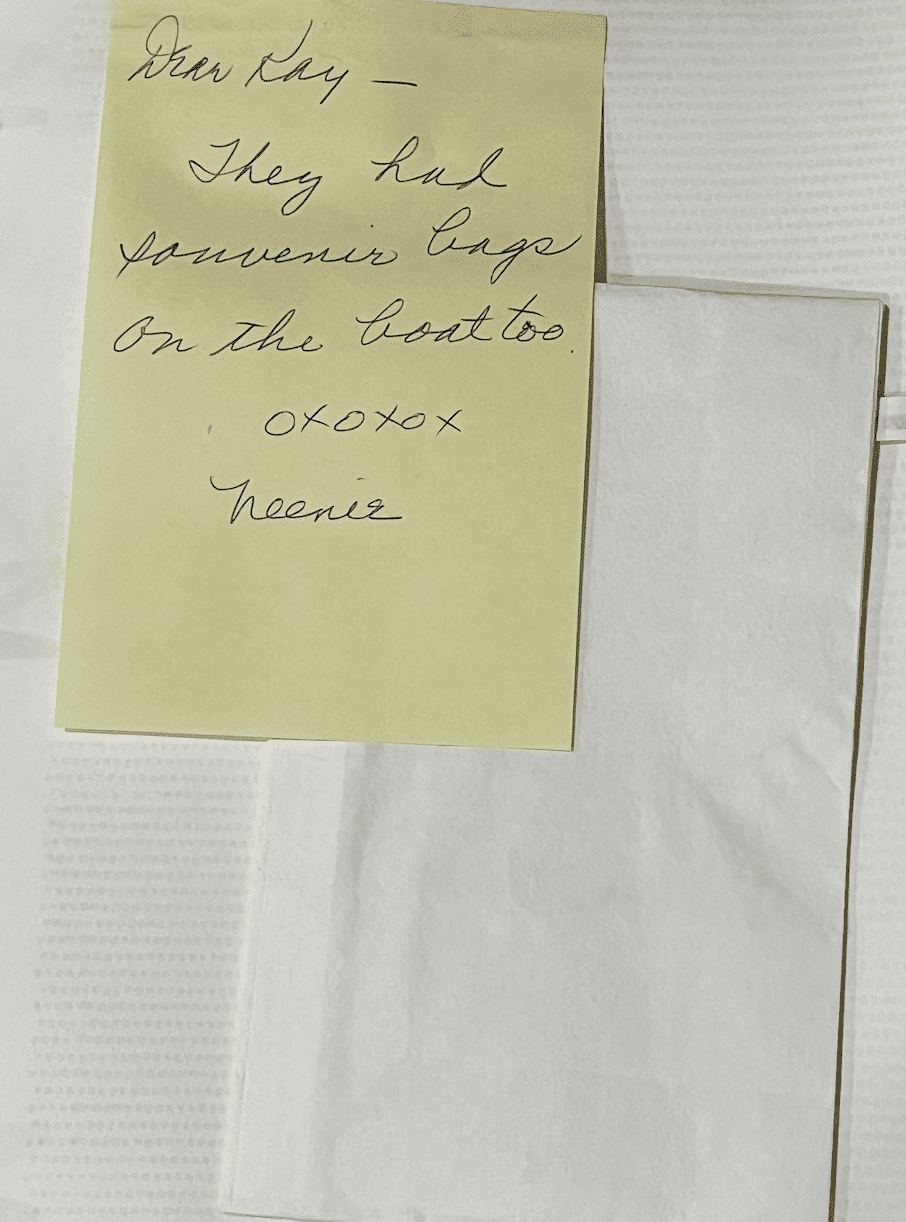 Dear Kay —
They had
souvenir bags
on the boat too.
oxoxox
Neenie